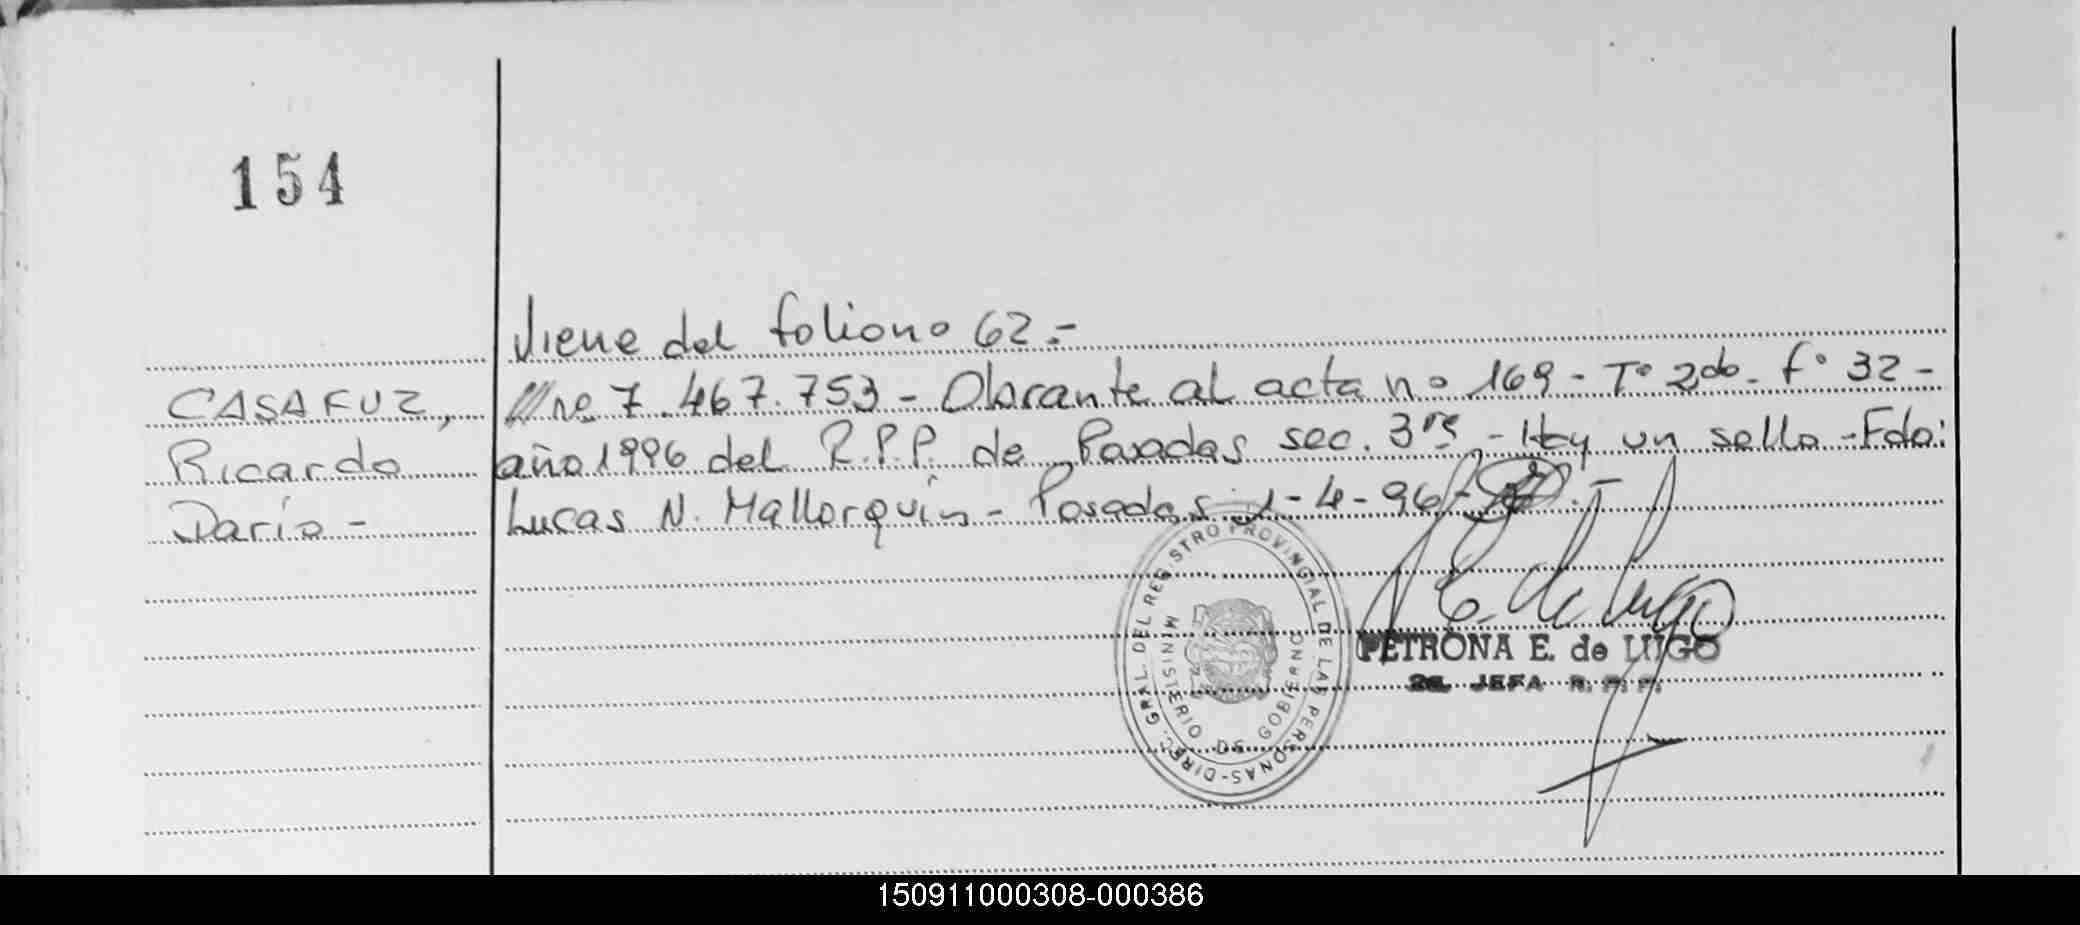 154
Viene del folio no 62.-
CASAFUZ, ///no 7.467.753 - Obrante al acta no 169 - Tº 2do. fº 32 -
Ricardo año 1996 del R.P.P. de Posadas sec. 3ra - Hay un sello - Fdo:
Darío - Lucas N. Mallorquín - Posadas 1-4-96 -
DIREC. GRAL. DEL REGISTRO PROVINCIAL DE LAS PERSONAS
MINISTERIO DE GOBIERNO
E. de Lugo
PETRONA E. de LUGO
JEFA R. P. P.
150911000308-000386